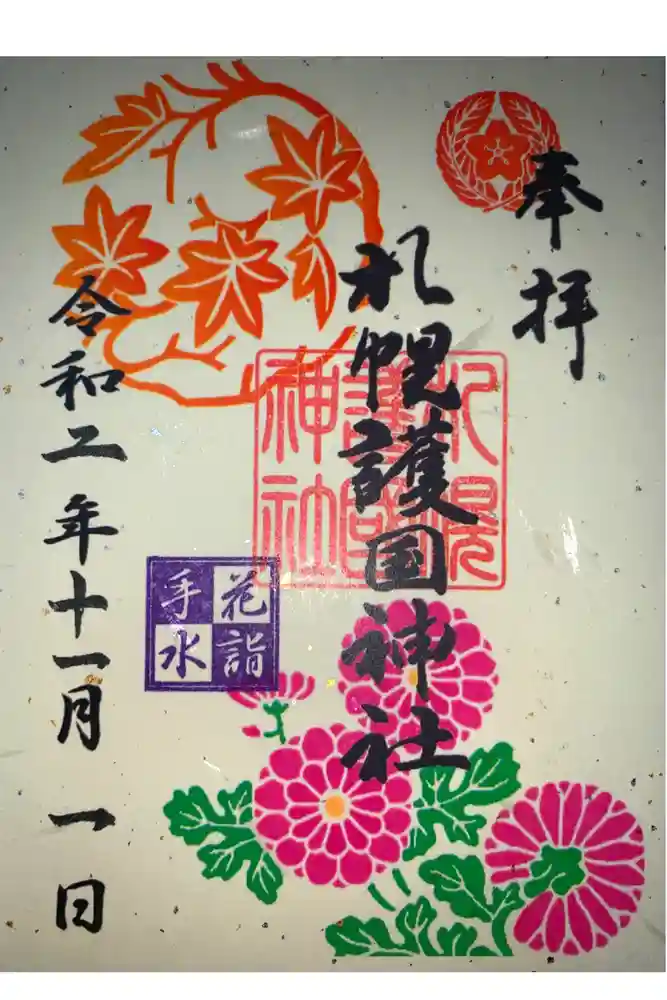 奉拝
札幌護国神社
札幌
護國
神社
花詣
手水
令和二年十一月一日